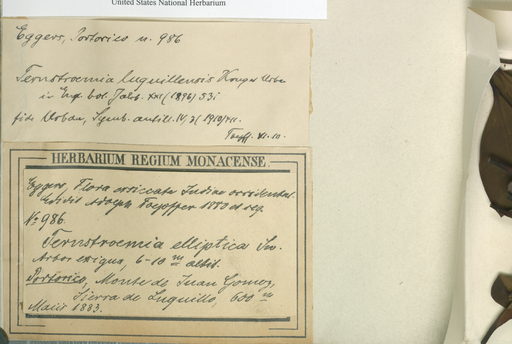 United States National Herbarium
Eggers, Portorico n. 986
Ternstroemia luquillensis Krug et Urban
in Engl. bot. Jahrb. XXI (1896) 531
fide Urban, Symb. antill. IV, 3 (1910)
Toepff.
HERBARIUM REGIUM MONACENSE.
Eggers, Flora exsiccata Indiae occidental.
Edidit Adolph Toepffer 1883 et seq.
No 986.
Ternstroemia elliptica Sw.
Arbor exigua, 6-10 m altit.
Portorico, Monte de Juan Gomez,
Sierra de Luquillo, 600 m
Maio 1883.